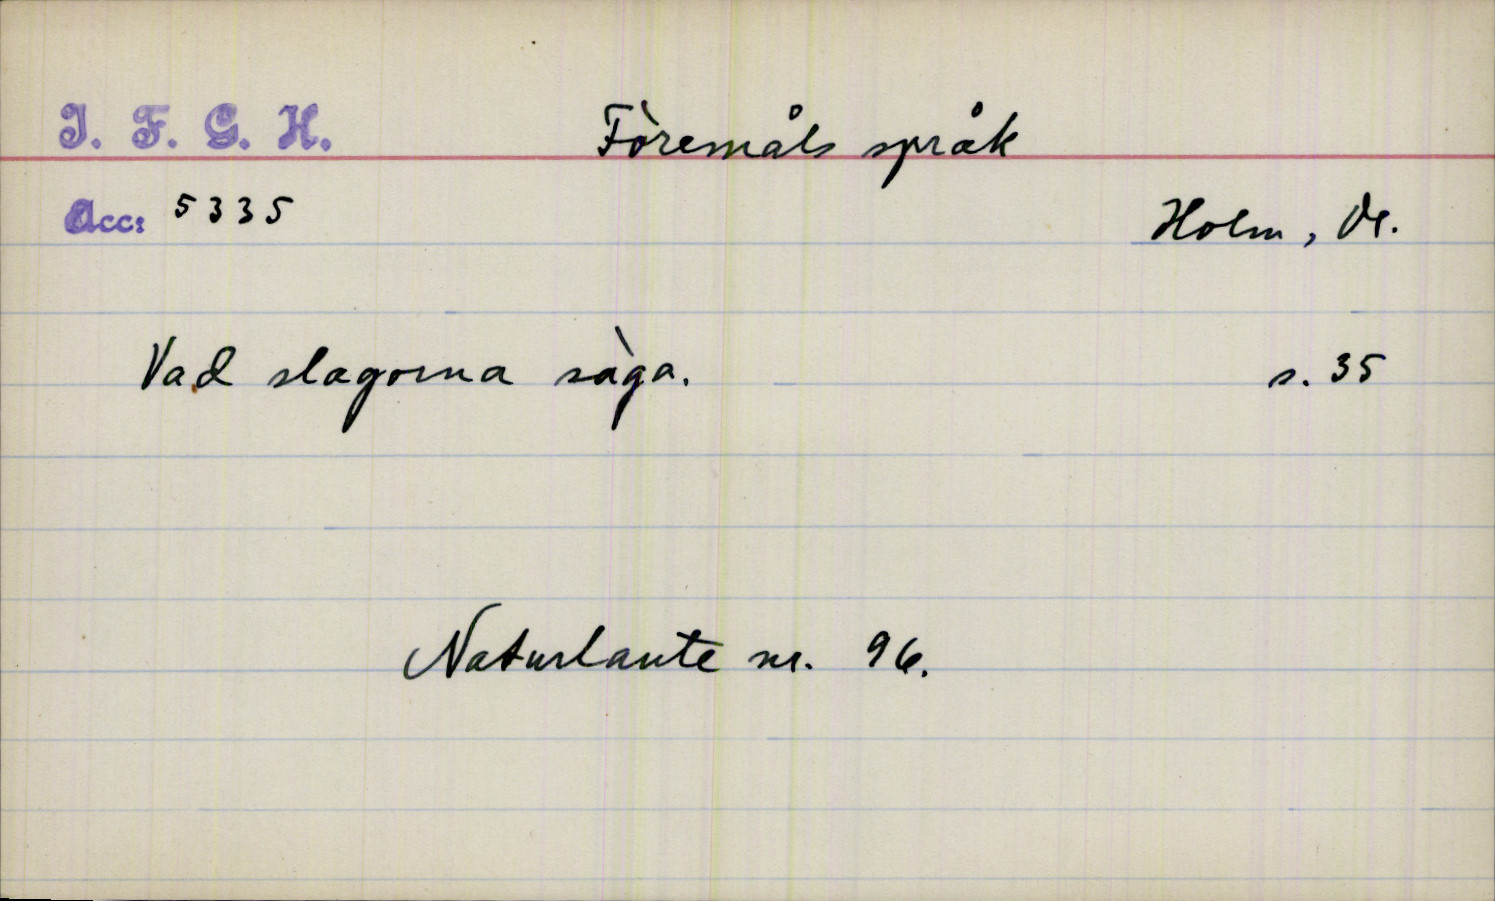 I. F. G. H.
Föremåls språk
Acc: 5335
Holm, Vr.
Vad slagorna säga.
s. 35
Naturlaute nr. 96.